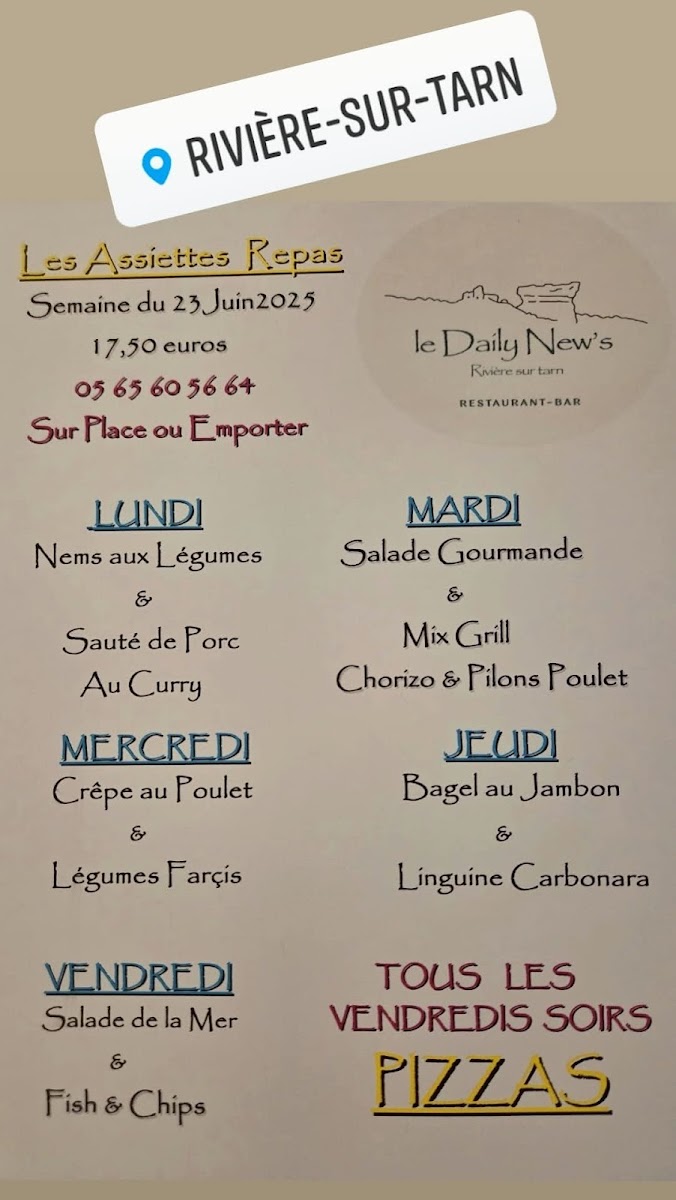 RIVIÈRE-SUR-TARN
Les Assiettes Repas
Semaine du 23 Juin2025
17,50 euros
05 65 60 56 64
Sur Place ou Emporter
le Daily New's
Rivière sur tarn
RESTAURANT-BAR
LUNDI
Nems aux Légumes
&
Sauté de Porc
Au Curry
MARDI
Salade Gourmande
&
Mix Grill
Chorizo & Pilons Poulet
MERCREDI
Crêpe au Poulet
&
Légumes Farçis
JEUDI
Bagel au Jambon
&
Linguine Carbonara
VENDREDI
Salade de la Mer
&
Fish & Chips
TOUS LES
VENDREDIS SOIRS
PIZZAS